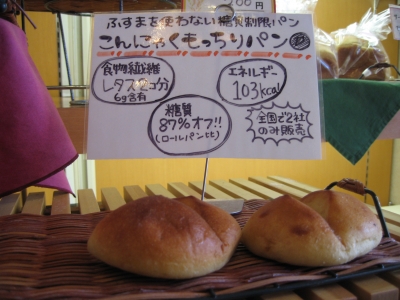 200円
ふすまを使わない糖質制限パン
こんにゃくもっちりパン
食物繊維
レタス2コ分
6g含有
エネルギー
103kcal
糖質
87%オフ!!
(ロールパン比)
全国で2社
のみ販売